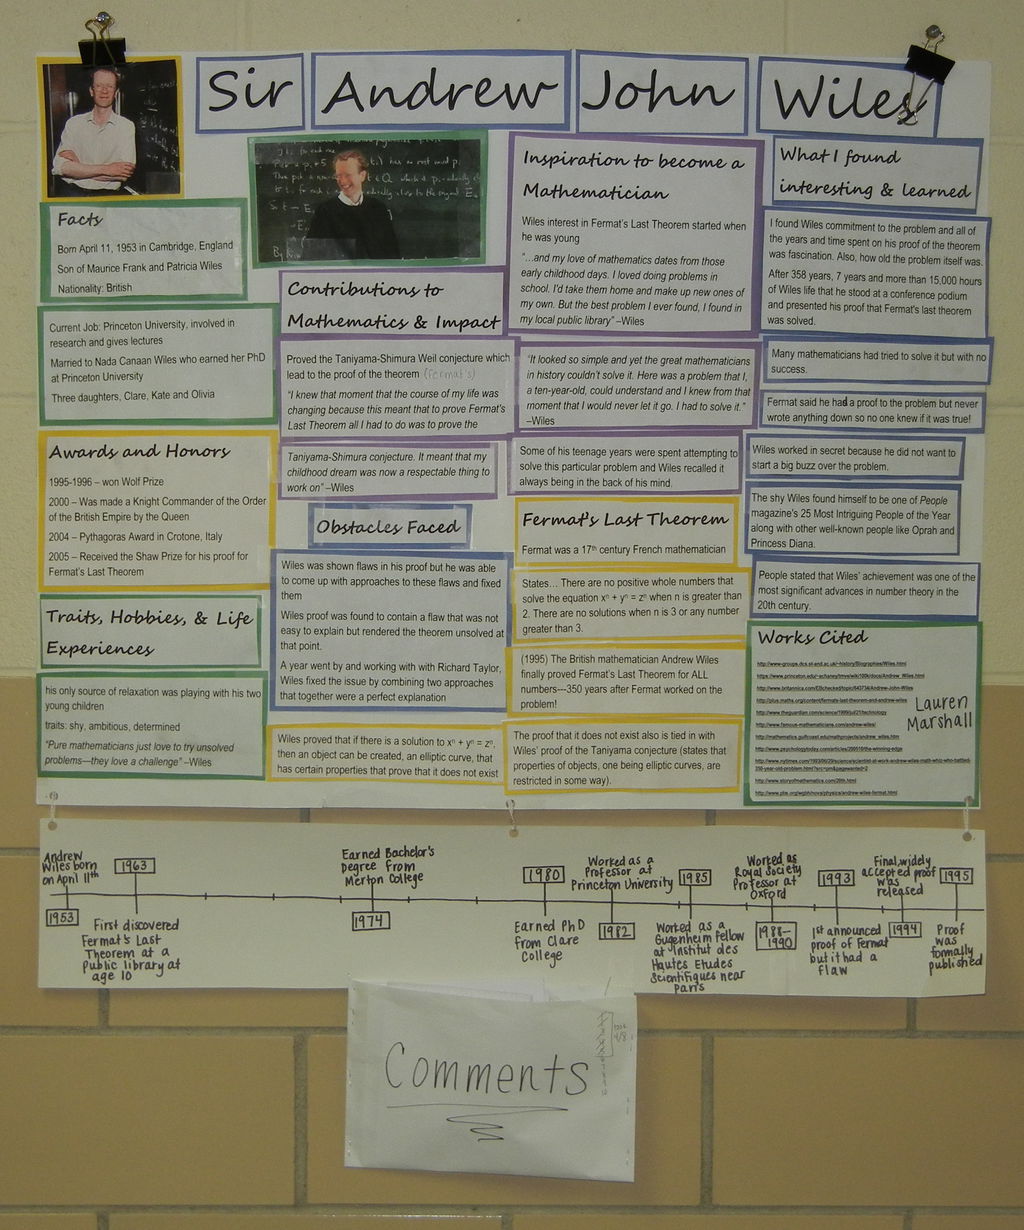 Sir Andrew John Wiles
Facts
Born April 11, 1953 in Cambridge, England
Son of Maurice Frank and Patricia Wiles
Nationality: British
Current Job: Princeton University, involved in
research and gives lectures
Married to Nada Canaan Wiles who earned her PhD
at Princeton University
Three daughters, Clare, Kate and Olivia
Awards and Honors
1995-1996 – won Wolf Prize
2000 – Was made a Knight Commander of the Order
of the British Empire by the Queen
2004 – Pythagoras Award in Crotone, Italy
2005 – Received the Shaw Prize for his proof for
Fermat's Last Theorem
Traits, Hobbies, & Life
Experiences
his only source of relaxation was playing with his two
young children
traits: shy, ambitious, determined
"Pure mathematicians just love to try unsolved
problems—they love a challenge" –Wiles
Contributions to
Mathematics & Impact
Proved the Taniyama-Shimura Weil conjecture which
lead to the proof of the theorem (Fermat's)
"I knew that moment that the course of my life was
changing because this meant that to prove Fermat's
Last Theorem all I had to do was to prove the
Taniyama-Shimura conjecture. It meant that my
childhood dream was now a respectable thing to
work on" –Wiles
Obstacles Faced
Wiles was shown flaws in his proof but he was able
to come up with approaches to these flaws and fixed
them
Wiles proof was found to contain a flaw that was not
easy to explain but rendered the theorem unsolved at
that point.
A year went by and working with with Richard Taylor,
Wiles fixed the issue by combining two approaches
that together were a perfect explanation
Wiles proved that if there is a solution to xⁿ + yⁿ = zⁿ,
then an object can be created, an elliptic curve, that
has certain properties that prove that it does not exist
Inspiration to become a
Mathematician
Wiles interest in Fermat's Last Theorem started when
he was young
"…and my love of mathematics dates from those
early childhood days. I loved doing problems in
school. I'd take them home and make up new ones of
my own. But the best problem I ever found, I found in
my local public library" –Wiles
"It looked so simple and yet the great mathematicians
in history couldn't solve it. Here was a problem that I,
a ten-year-old, could understand and I knew from that
moment that I would never let it go. I had to solve it."
–Wiles
Some of his teenage years were spent attempting to
solve this particular problem and Wiles recalled it
always being in the back of his mind.
Fermat's Last Theorem
Fermat was a 17th century French mathematician
States… There are no positive whole numbers that
solve the equation xⁿ + yⁿ = zⁿ when n is greater than
2. There are no solutions when n is 3 or any number
greater than 3.
(1995) The British mathematician Andrew Wiles
finally proved Fermat's Last Theorem for ALL
numbers---350 years after Fermat worked on the
problem!
The proof that it does not exist also is tied in with
Wiles' proof of the Taniyama conjecture (states that
properties of objects, one being elliptic curves, are
restricted in some way).
What I found
interesting & learned
I found Wiles commitment to the problem and all of
the years and time spent on his proof of the theorem
was fascination. Also, how old the problem itself was.
After 358 years, 7 years and more than 15,000 hours
of Wiles life that he stood at a conference podium
and presented his proof that Fermat's last theorem
was solved.
Many mathematicians had tried to solve it but with no
success.
Fermat said he had a proof to the problem but never
wrote anything down so no one knew if it was true!
Wiles worked in secret because he did not want to
start a big buzz over the problem.
The shy Wiles found himself to be one of People
magazine's 25 Most Intriguing People of the Year
along with other well-known people like Oprah and
Princess Diana.
People stated that Wiles' achievement was one of the
most significant advances in number theory in the
20th century.
Works Cited
Lauren
Marshall
Andrew
Wiles born
on April 11th
1953
1963
First discovered
Fermat's Last
Theorem at a
Public library at
age 10
Earned Bachelor's
Degree from
Merton College
1974
1980
Earned PhD
from Clare
College
Worked as a
Professor at
Princeton University
1982
1985
Worked as a
Gugenheim fellow
at Institut des
Hautes Etudes
Scientifiques near
Paris
Worked as
Royal Society
Professor at
Oxford
1988-
1990
1993
1st announced
proof of Fermat
but it had a
flaw
Final, widely
accepted proof
was
released
1994
1995
Proof
was
formally
published
Comments